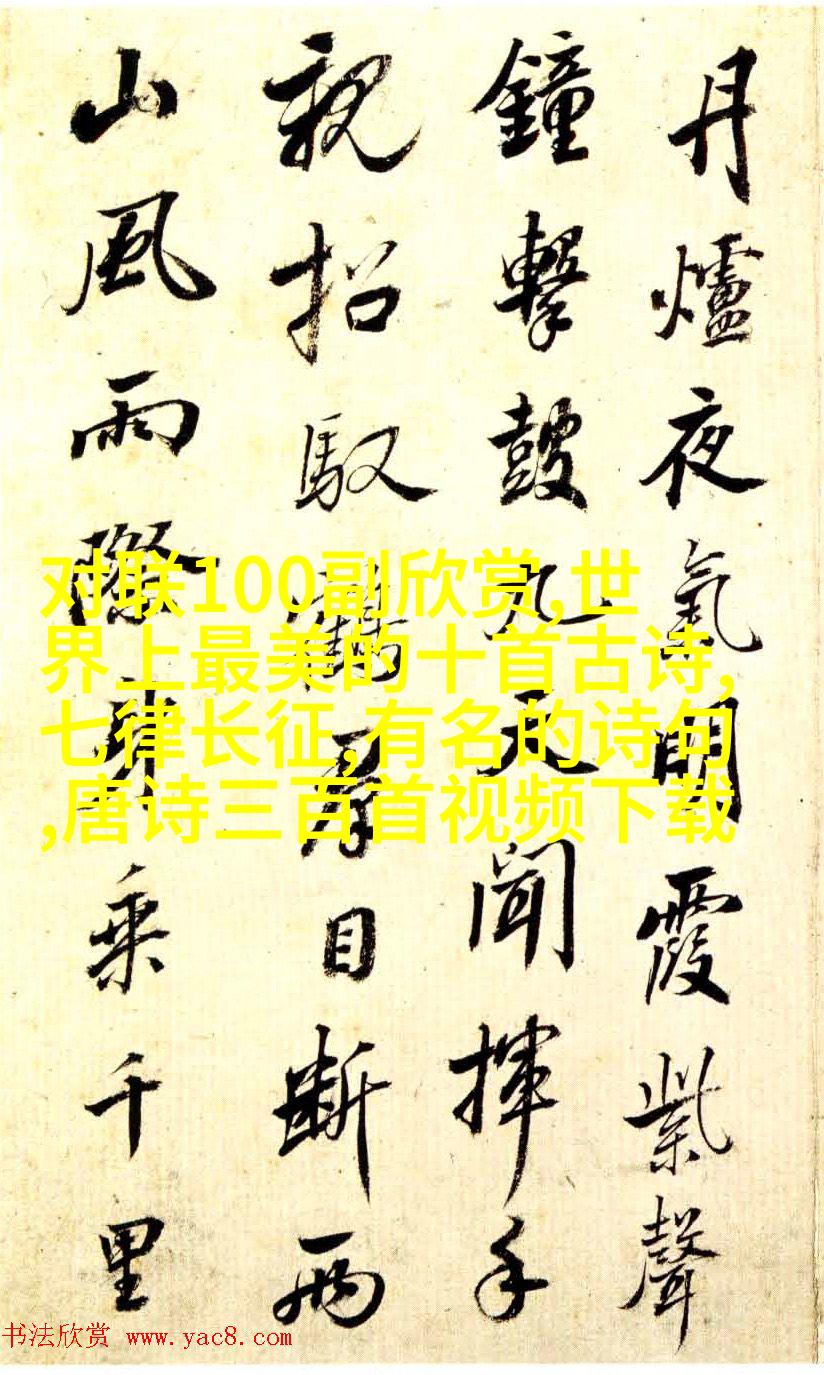 丹爐夜氣明霞紫聲
鐘擊鼓九天聞揮手
親招馭鶴群目斷兩
山風雨際身乘千里
对联100副欣赏,世
界上最美的十首古诗,
七律长征,有名的诗句
,唐诗三百首视频下载
书法欣赏 www.yac8.com